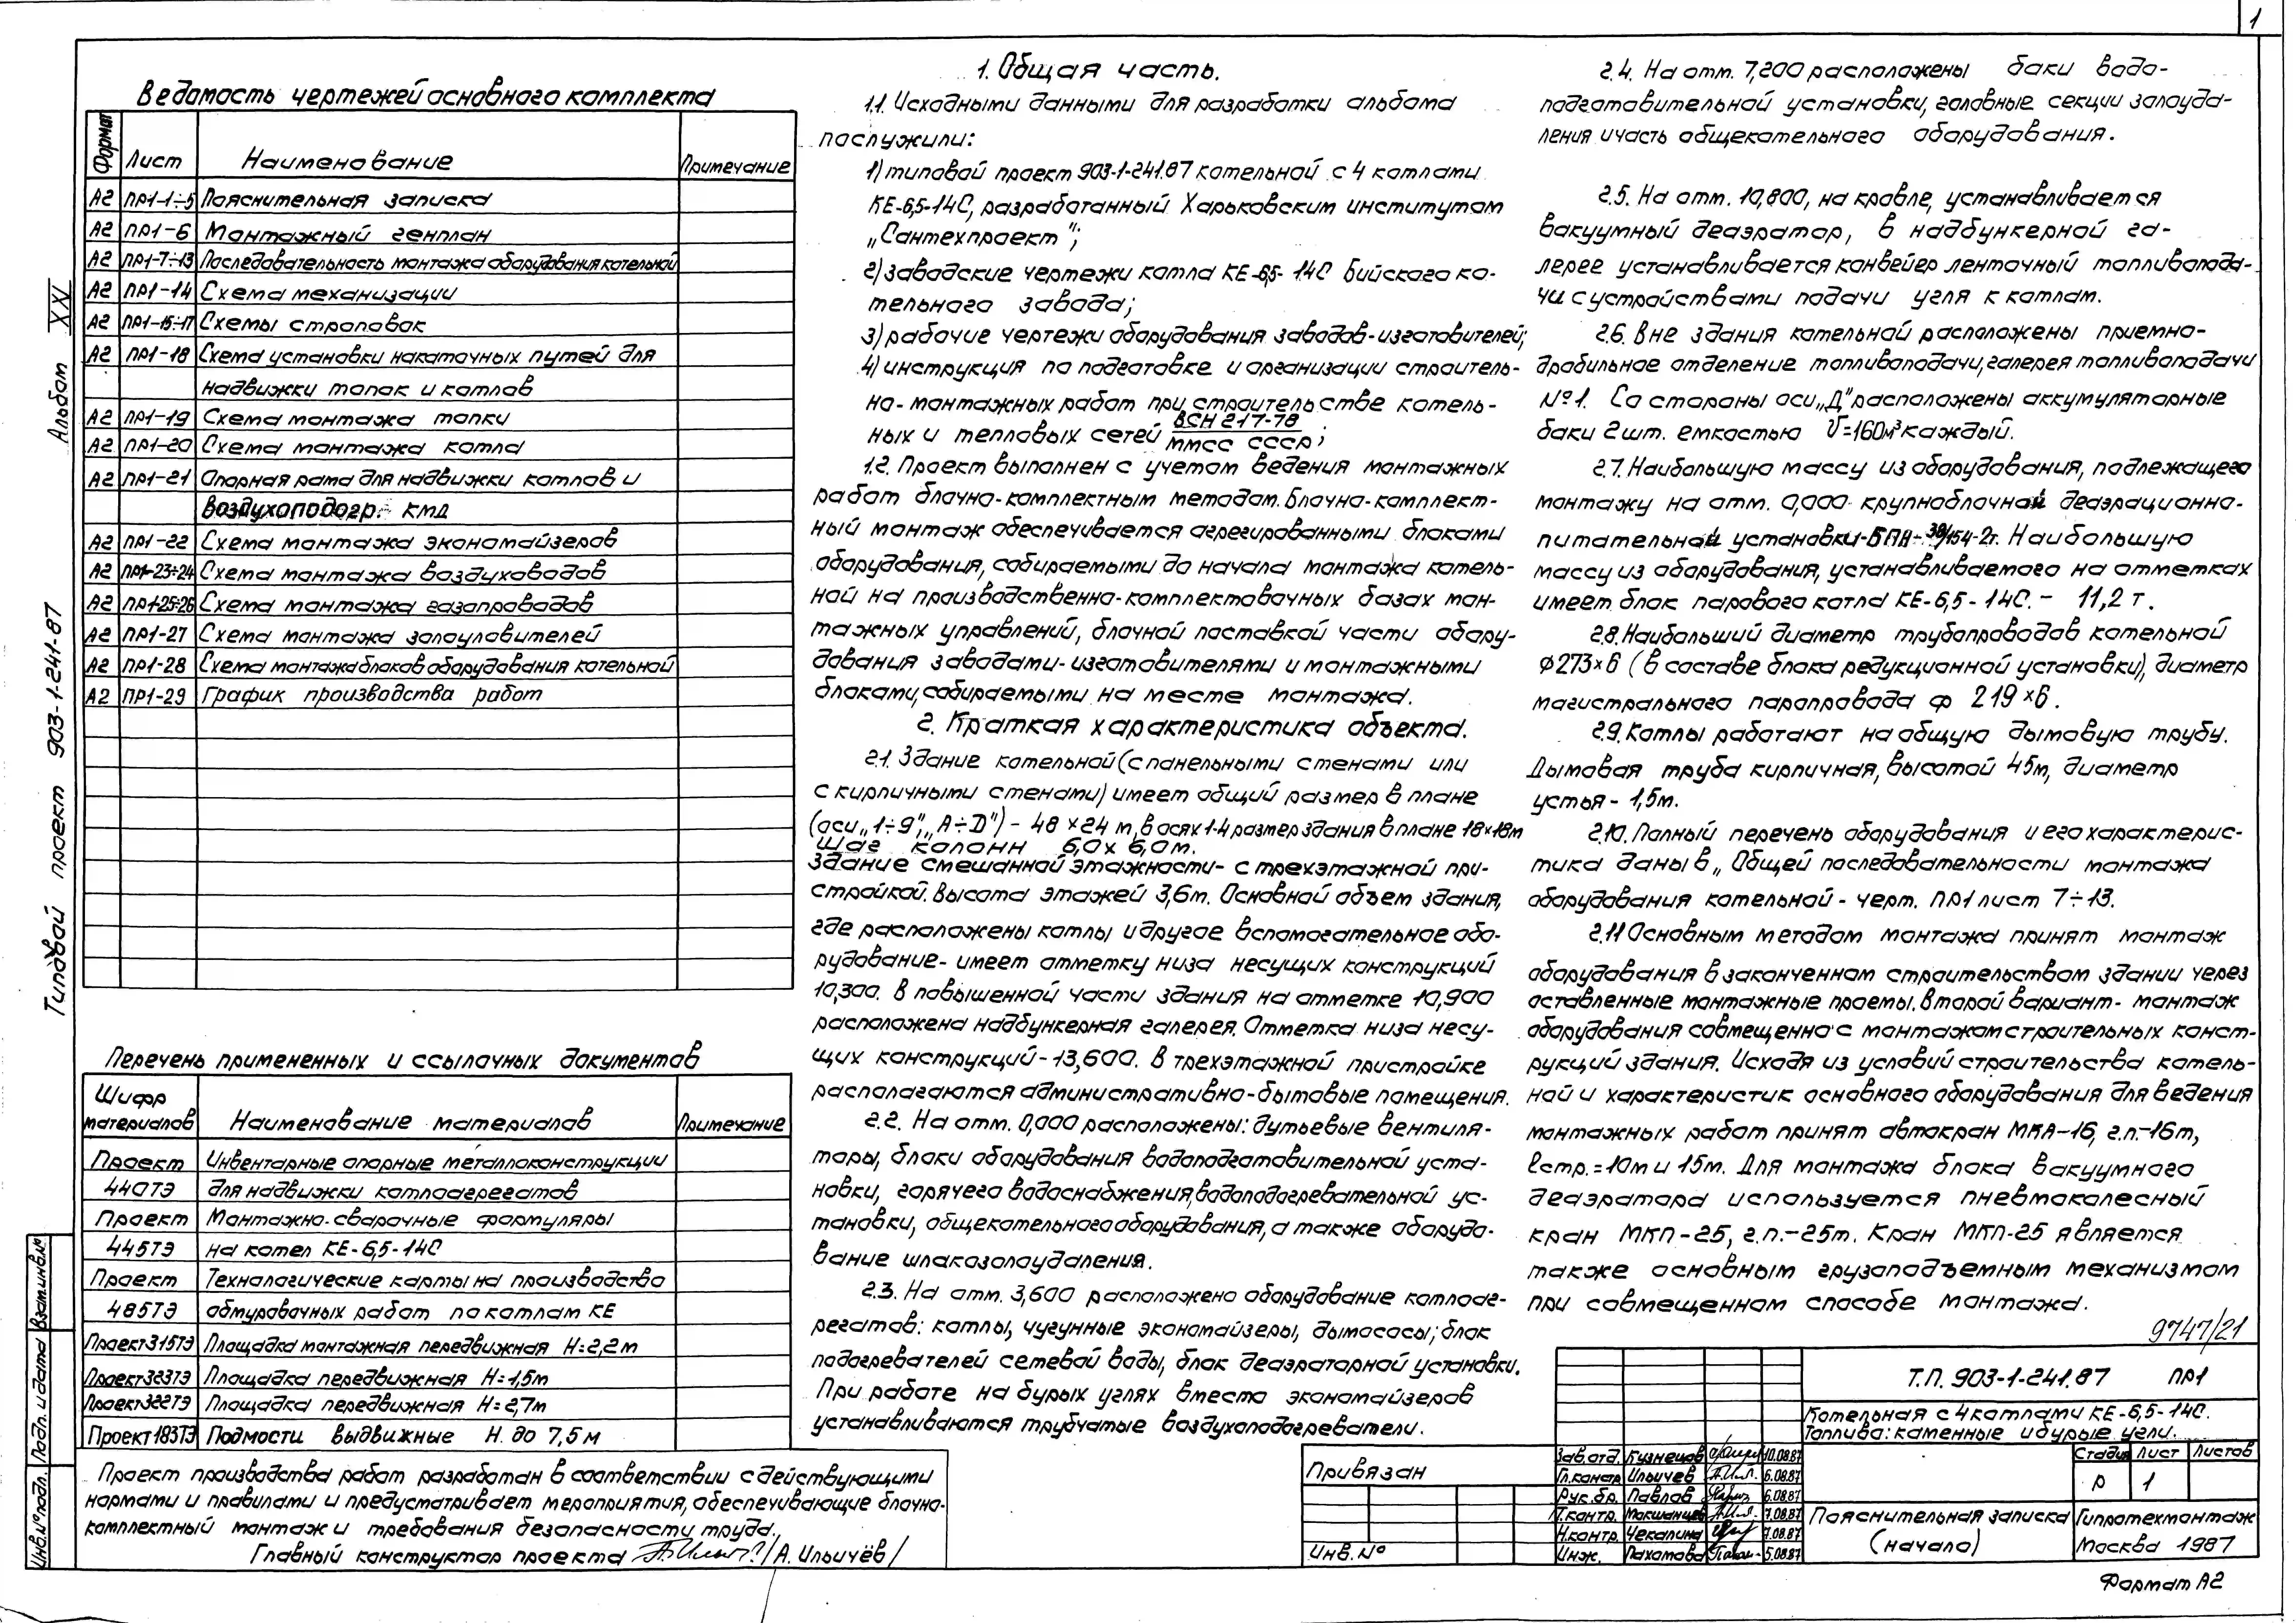 1
Ведомость чертежей основного комплекта
Формат Лист Наименование Примечание
А2 ПР1-1÷5 Пояснительная записка
А2 ПР1-6 Монтажный генплан
А2 ПР1-7÷13 Последовательность монтажа оборудования котельной
А2 ПР1-14 Схема механизации
А2 ПР1-15÷17 Схемы строповок
А2 ПР1-18 Схема установки накаточных путей для
надвижки топок и котлов
А2 ПР1-19 Схема монтажа топки
А2 ПР1-20 Схема монтажа котла
А2 ПР1-21 Опорная рама для надвижки котлов и
воздухоподогр. КМД
А2 ПР1-22 Схема монтажа экономайзеров
А2 ПР1-23÷24 Схема монтажа воздуховодов
А2 ПР1-25÷26 Схема монтажа газопроводов
А2 ПР1-27 Схема монтажа золоуловителей
А2 ПР1-28 Схема монтажа блоков оборудования котельной
А2 ПР1-29 График производства работ
Перечень примененных и ссылочных документов
Шифр материалов Наименование материалов Примечание
Проект Инвентарные опорные металлоконструкции
440ТЭ для надвижки котлоагрегатов
Проект Монтажно-сварочные формуляры
445ТЭ на котел КЕ-6,5-14С
Проект Технологические карты на производство
485ТЭ обмуровочных работ по котлам КЕ
Проект 315ТЭ Площадка монтажная передвижная Н=2,2м
Проект 323ТЭ Площадка передвижная Н=1,5м
Проект 322ТЭ Площадка передвижная Н=2,7м
Проект 183ТЭ Подмости выдвижные Н до 7,5м
Проект производства работ разработан в соответствии с действующими
нормами и правилами и предусматривает мероприятия, обеспечивающие блочно-
комплектный монтаж и требования безопасности труда.
Главный конструктор проекта /А. Ильичёв/
1. Общая часть.
1.1. Исходными данными для разработки альбома
послужили:
1) типовой проект 903-1-241.87 котельной с 4 котлами
КЕ-6,5-14С, разработанный Харьковским институтом
„Сантехпроект";
2) заводские чертежи котла КЕ-6,5-14С Бийского ко-
тельного завода;
3) рабочие чертежи оборудования заводов-изготовителей;
4) инструкция по подготовке и организации строитель-
но-монтажных работ при строительстве котель-
ных и тепловых сетей ВСН 217-78 / ММСС СССР;
1.2. Проект выполнен с учетом ведения монтажных
работ блочно-комплектным методом. Блочно-комплект-
ный монтаж обеспечивается агрегированными блоками
оборудования, собираемыми до начала монтажа котель-
ной на производственно-комплектовочных базах мон-
тажных управлений, блочной поставкой части обору-
дования заводами-изготовителями и монтажными
блоками, собираемыми на месте монтажа.
2. Краткая характеристика объекта.
2.1. Здание котельной (с панельными стенами или
с кирпичными стенами) имеет общий размер в плане
(оси „1÷9", „А÷D") - 48×24 м, в осях 1-4 размер здания в плане 18×18м
Шаг колонн 6,0×6,0м.
Здание смешанной этажности - с трехэтажной при-
стройкой. Высота этажей 3,6м. Основной объем здания,
где расположены котлы и другое вспомогательное обо-
рудование - имеет отметку низа несущих конструкций
10,300. В повышенной части здания на отметке 10,900
расположена надбункерная галерея. Отметка низа несу-
щих конструкций - 13,600. В трехэтажной пристройке
располагаются административно-бытовые помещения.
2.2. На отм. 0,000 расположены: дутьевые вентиля-
торы, блоки оборудования водоподготовительной уста-
новки, горячего водоснабжения, водоподогревательной ус-
тановки, общекотельного оборудования, а также оборудо-
вание шлакозолоудаления.
2.3. На отм. 3,600 расположено оборудование котлоаг-
регатов: котлы, чугунные экономайзеры, дымососы; блок
подогревателей сетевой воды, блок деаэраторной установки.
При работе на бурых углях вместо экономайзеров
устанавливаются трубчатые воздухоподогреватели.
2.4. На отм. 7,200 расположены баки водо-
подготовительной установки, головные секции золоуда-
ления и часть общекотельного оборудования.
2.5. На отм. 10,800, на кровле, устанавливается
вакуумный деаэратор, в надбункерной га-
лерее устанавливается конвейер ленточный топливопода-
чи с устройствами подачи угля к котлам.
2.6. Вне здания котельной расположены приемно-
дробильное отделение топливоподачи, галерея топливоподачи
№1. Со стороны оси „Д" расположены аккумуляторные
баки 2 шт. емкостью V=160м³ каждый.
2.7. Наибольшую массу из оборудования, подлежащего
монтажу на отм. 0,000 крупноблочной деаэрационно-
питательной установки-БПА-30/154-2г. Наибольшую
массу из оборудования, устанавливаемого на отметках
имеет блок парового котла КЕ-6,5-14С. - 11,2 т.
2.8. Наибольший диаметр трубопроводов котельной
Ф273×6 (в составе блока редукционной установки), диаметр
магистрального паропровода ф 219×6.
2.9. Котлы работают на общую дымовую трубу.
Дымовая труба кирпичная, высотой 45м, диаметр
устья - 1,5м.
2.10. Полный перечень оборудования и его характерис-
тика даны в „Общей последовательности монтажа
оборудования котельной - черт. ПР1 лист 7÷13.
2.11 Основным методом монтажа принят монтаж
оборудования в законченном строительством здании через
оставленные монтажные проемы. Второй вариант - монтаж
оборудования совмещенно с монтажом строительных конст-
рукций здания. Исходя из условий строительства котель-
ной и характеристик основного оборудования для ведения
монтажных работ принят автокран МКА-16, г.п.-16т,
lстр.=10м и 15м. Для монтажа блока вакуумного
деаэратора используется пневмоколесный
кран МКП-25, г.п.-25т. Кран МКП-25 является
также основным грузоподъемным механизмом
при совмещенном способе монтажа.
9747/21
Т.П. 903-1-241.87 ПР1
Котельная с 4 котлами КЕ-6,5-14С.
Топливо: каменные и бурые угли.
Стадия Лист Листов
Р 1
Пояснительная записка
(начало)
Гипротехмонтаж
Москва 1987
Зав.отд. Кузнецов 10.08.87
Гл.констр Ильичев 6.08.87
Рук.бр. Павлов 6.08.87
Т.контр. Мокшанцев 7.08.87
Н.контр. Чекалина 7.08.87
Инж. Пахомова 5.08.87
Привязан
Инв.№
Формат А2
Типовой проект 903-1-241-87 Альбом XXI
Инв.№подл. Подп. и дата Взам.инв.№